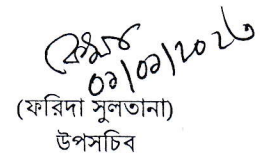 ০৯/০৯/২০২৬
(ফরিদা সুলতানা)
উপসচিব